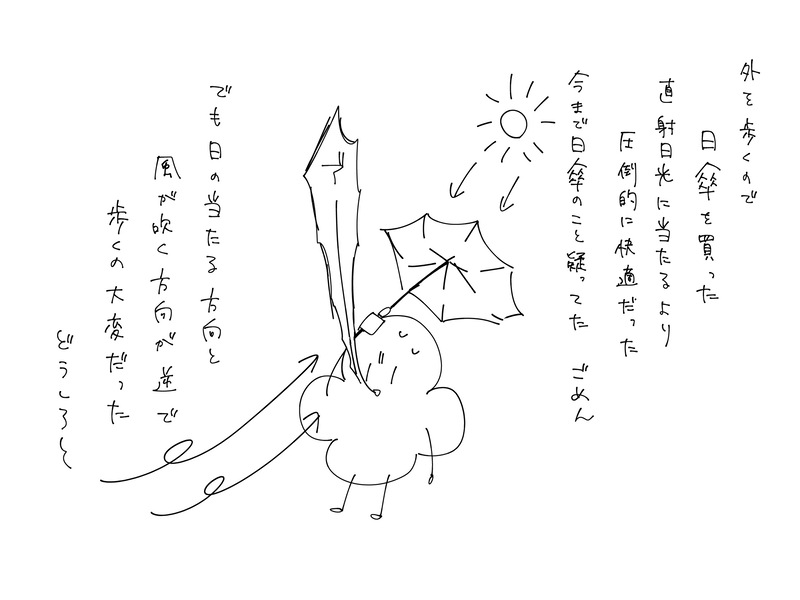 外を歩くので
日傘を買った
直射日光に当たるより
圧倒的に快適だった
今まで日傘のこと疑ってた　ごめん
でも日の当たる方向と
風が吹く方向が逆で
歩くの大変だった
どうしろと